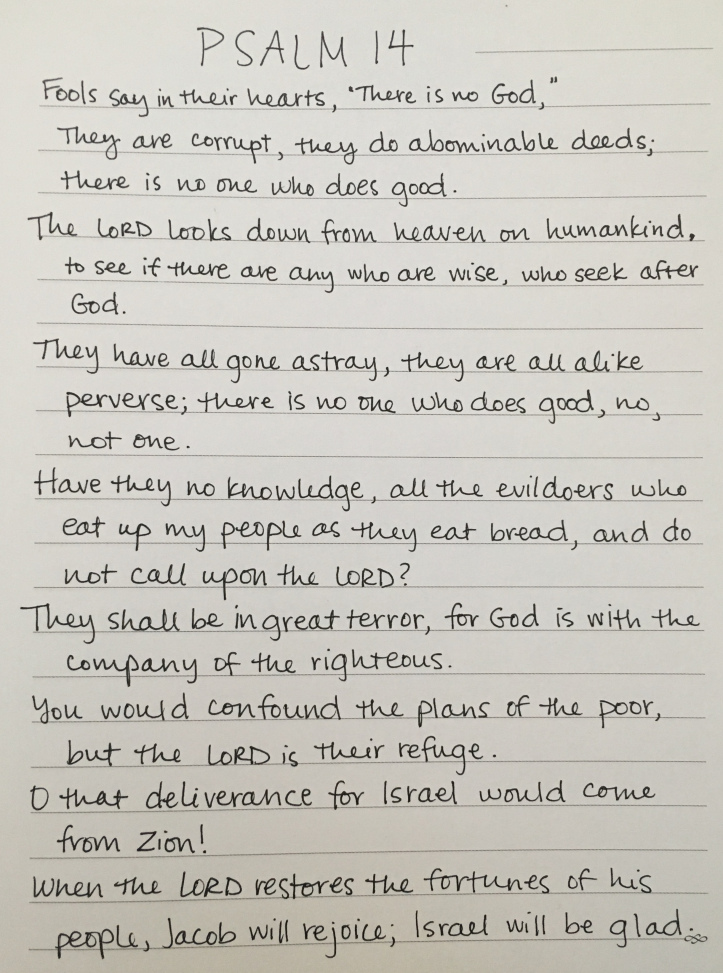 PSALM 14
Fools say in their hearts, "There is no God,"
They are corrupt, they do abominable deeds;
there is no one who does good.
The LORD looks down from heaven on humankind,
to see if there are any who are wise, who seek after
God.
They have all gone astray, they are all alike
perverse; there is no one who does good, no,
not one.
Have they no knowledge, all the evildoers who
eat up my people as they eat bread, and do
not call upon the LORD?
They shall be in great terror, for God is with the
company of the righteous.
You would confound the plans of the poor,
but the LORD is their refuge.
O that deliverance for Israel would come
from Zion!
When the LORD restores the fortunes of his
people, Jacob will rejoice; Israel will be glad.